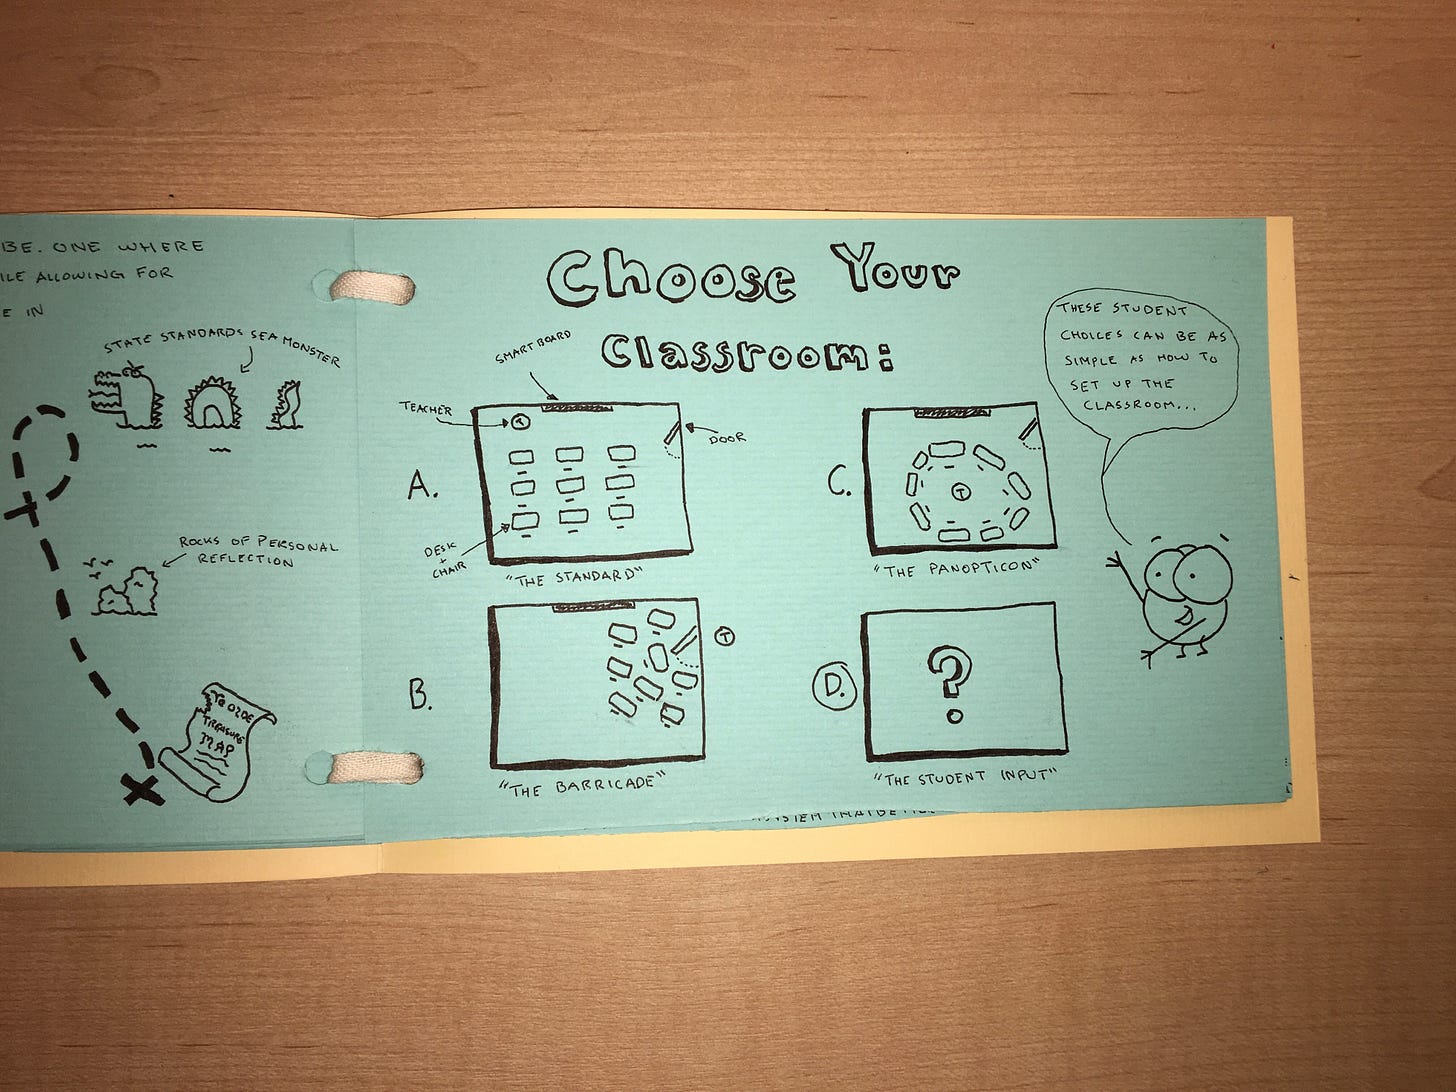 BE. ONE WHERE
ILE ALLOWING FOR
E IN
STATE STANDARDS SEA MONSTER
ROCKS OF PERSONAL
REFLECTION
YE OLDE
TREASURE
MAP
Choose Your
Classroom:
SMART BOARD
TEACHER
T
DOOR
A.
DESK
+
CHAIR
"THE STANDARD"
B.
T
"THE BARRICADE"
C.
T
"THE PANOPTICON"
D.
?
"THE STUDENT INPUT"
THESE STUDENT
CHOICES CAN BE AS
SIMPLE AS HOW TO
SET UP THE
CLASSROOM...